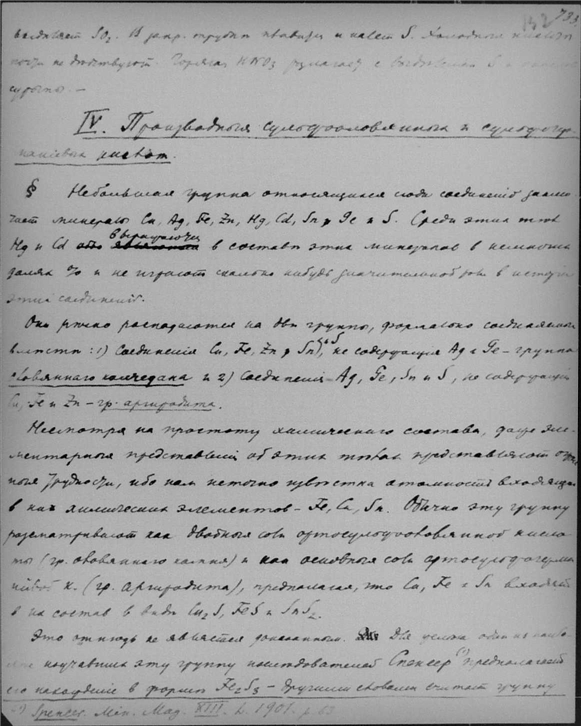 152 733
выделяет SO₂. В закр. трубке плавится и дает S. Холодные кислоты
почти не действуют. Горячая HNO₃ разлагает с выделением S и
IV. Производныя сульфооловянных и сульфогер-
маніевых кислот.
§ Небольшая группа относящихся сюда соединеній заклю-
чает минералы Cu, Ag, Fe, Zn, Hg, Cd, Sn, Ge и S. Среди этих тел
Hg и Cd входят в состав этих минералов в немногих
долях % и не играют сколько нибудь значительной роли в исторіи
этих соединеній.
Они резко распадаются на две группы, формально соединяемыя
вместе: 1) Соединенія Cu, Fe, Zn, Sn и S, не содержащія Ag и Ge – группа
оловяннаго колчедана и 2) Соединенія Ag, Ge, Sn и S, не содержащія
Cu, Fe и Zn – гр. аргиродита.
Несмотря на простоту химическаго состава, даже эле-
ментарныя представленія об этих телах представляют
трудности, ибо нам неточно известна атомность входящих
в них химических элементов – Fe, Cu, Sn. Обычно эту группу
разсматривают как двойныя соли ортосульфооловянной кисло-
ты (гр. оловяннаго камня) и как основныя соли ортосульфогерма-
ніевой к. (гр. аргиродита), предполагая, что Cu, Fe и Sn входят
в их состав в виде Cu₂S, FeS и SnS₂.
Это отнюдь не является доказанным. Для железа один из наибо-
лее изучавших эту группу изследователей Спенсер ¹) предполагает
его нахожденіе в форме Fe₂S₃ – Другими словами считает группу
¹) Spencer. Min. Mag. XIII. L. 1901. p. 53